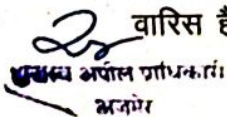 वारिस है
अपील प्राधिकारी
अजमेर